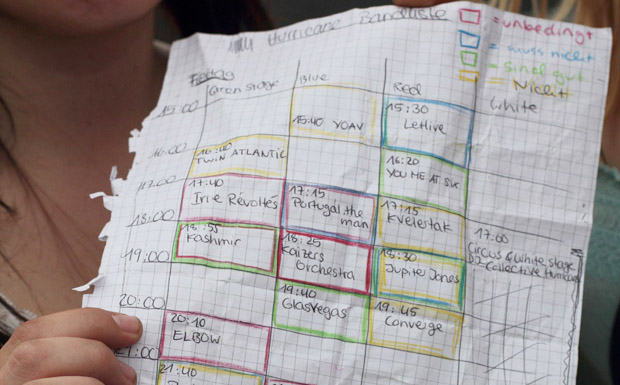 Hurricane Bandliste
= unbedingt
= muss nicht
= sind gut
= Nicht
Freitag
Green stage
Blue
Red
White
15:00
15:40 YOAV
15:30
Letlive
16:00
16:40
TWIN ATLANTIC
16:20
YOU ME AT SIX
17:00
17:40
Irie Révoltés
17:15
Portugal. the
man
17:15
Kvelertak
17:00
Circus & White stage
Collective
18:00
18:55
Kashmir
18:25
Kaizers
Orchestra
18:30
Jupiter Jones
19:00
19:40
Glasvegas
19:45
Converge
20:00
20:10
ELBOW
21:00
21:40